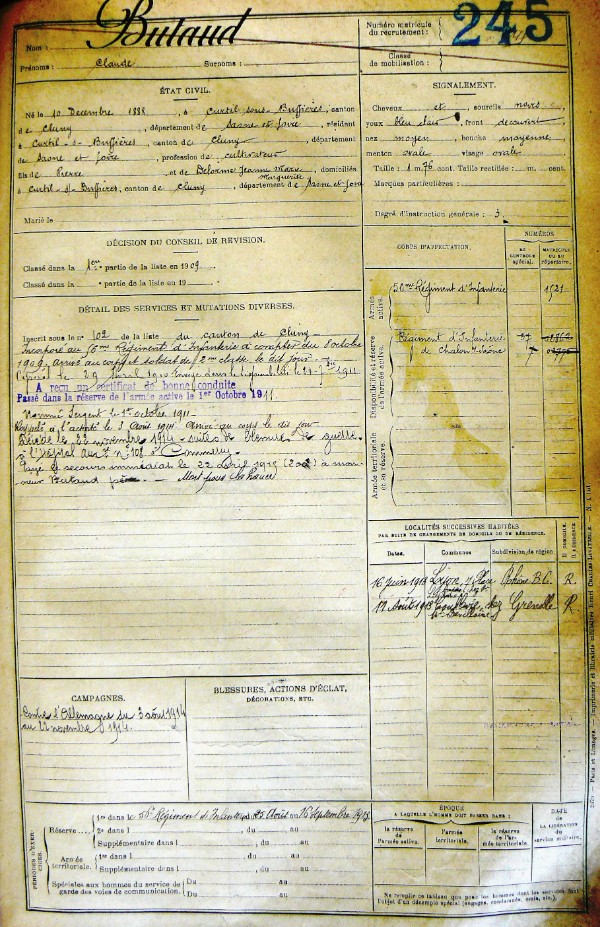 Nom : Butaud
Prénoms : Claude Surnoms :
Numéro matricule du recrutement : 245
Classe de mobilisation :
ÉTAT CIVIL.
Né le 10 Décembre 1888, à Curtil-sous-Buffières, canton
de Cluny, département de Saône et Loire, résidant
à Curtil-s-Buffières, canton de Cluny, département
de Saône et Loire, profession de cultivateur
fils de Pierre et de Delorme Jeanne Marie Marguerite, domiciliés
à Curtil-s-Buffières, canton de Cluny, département de Saône et Loire
Marié le
SIGNALEMENT.
Cheveux et sourcils noirs
yeux bleu clair, front découvert
nez moyen, bouche moyenne
menton ovale visage ovale
Taille : 1 m. 76 cent. Taille rectifiée : m. cent.
Marques particulières :
Degré d'instruction générale : 3
DÉCISION DU CONSEIL DE RÉVISION.
Classé dans la 1ère partie de la liste en 1909.
Classé dans la partie de la liste en 19
DÉTAIL DES SERVICES ET MUTATIONS DIVERSES.
Inscrit sous le n° 102 de la liste du canton de Cluny
Incorporé au 56me Régiment d'Infanterie à compter du 8 octobre
1909. Arrivé au corps et soldat de 2me classe le dit jour
1911
A reçu un certificat de bonne conduite
Passé dans la réserve de l'armée active le 1er Octobre 1911.
Nommé Sergent le 1er octobre 1911
Rappelé à l'activité le 3 Août 1914 Arrivé au corps le dit jour
Décédé le 22 novembre 1914 suites de blessures de guerre
à l'hôpital n° 108 à Commercy
Payé le secours immédiat le 22 Avril 1915 à mon-
sieur Butaud père Mort pour la France
CORPS D'AFFECTATION.
NUMÉROS
AU CONTRÔLE spécial.
MATRICULE OU AU répertoire.
Armée active.
56me Régiment d'Infanterie
Disponibilité et réserve de l'armée active.
Régiment d'Infanterie
de Chalon s/Saône
Armée territoriale et sa réserve.
LOCALITÉS SUCCESSIVES HABITÉES
PAR SUITE DE CHANGEMENTS DE DOMICILE OU DE RÉSIDENCE.
Dates. Communes Subdivision de région D. DOMICILE. R. RÉSIDENCE
16 Juin 1913 Lyon, Place Rhône B.C. R.
Août 1913 chez Grenoble R.
CAMPAGNES.
Contre l'Allemagne du 3 août 1914
au 22 novembre 1914.
BLESSURES, ACTIONS D'ÉCLAT,
DÉCORATIONS, ETC.
PÉRIODES D'EXERCICES
Réserve
1re dans le 56e Régiment d'Infanterie, du 25 Août au 16 Septembre 1913.
2e dans l , du au
Supplémentaire dans l , du au
Armée territoriale.
1re dans l , du au
Supplémentaire dans l , du au
Spéciales aux hommes du service de
garde des voies de communication.
Du au
Du au
ÉPOQUE
A LAQUELLE L'HOMME DOIT PASSER DANS :
la réserve de l'armée active. l'armée territoriale. la réserve de l'armée territoriale.
DATE DE LA LIBÉRATION du service militaire.
Ne remplir ce tableau que pour les hommes dont les services font
l'objet d'un décompte spécial (engagés, condamnés, omis, etc.).